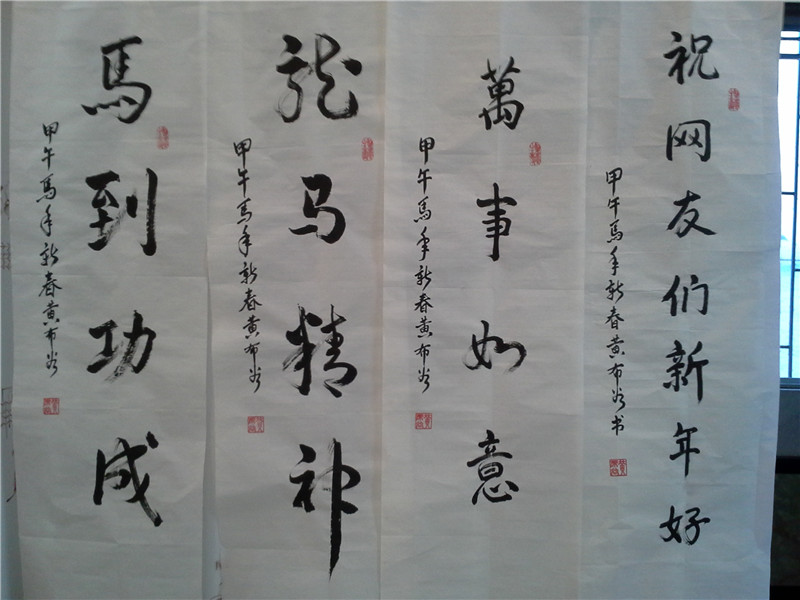 祝网友们新年好
甲午馬年新春黄布谷书
萬事如意
甲午馬年新春黄布谷
龍马精神
甲午馬年新春黄布谷
馬到功成
甲午馬年新春黄布谷